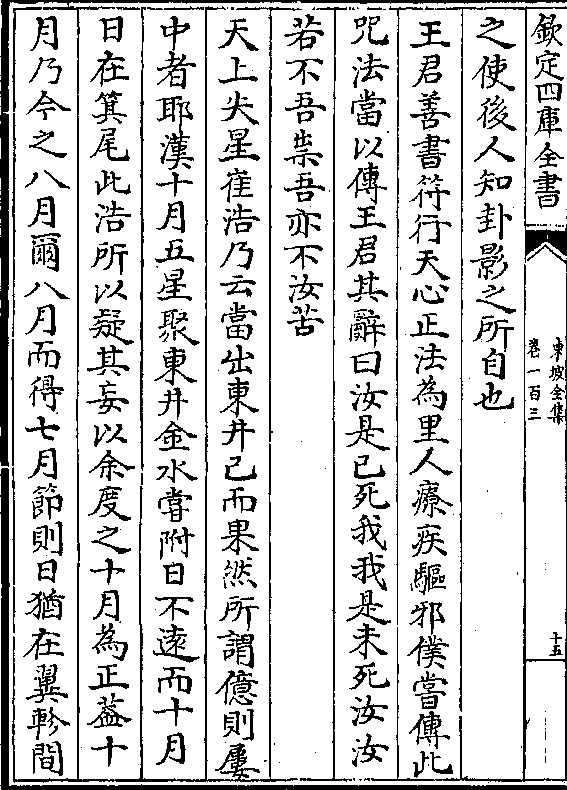 欽定四庫全書
東坡全集
卷一百三
十五
之使後人知卦影之所自也
王君善書符行天心正法為里人療疾驅邪僕嘗傳此
咒法當以傳王君其辭曰汝是已死我我是未死汝汝
若不吾祟吾亦不汝苦
天上失星崔浩乃云當出東井已而果然所謂億則屢
中者耶漢十月五星聚東井金水嘗附日不遠而十月
日在箕尾此浩所以疑其妄以余度之十月為正蓋十
月乃今之八月爾八月而得七月節則日猶在翼軫間